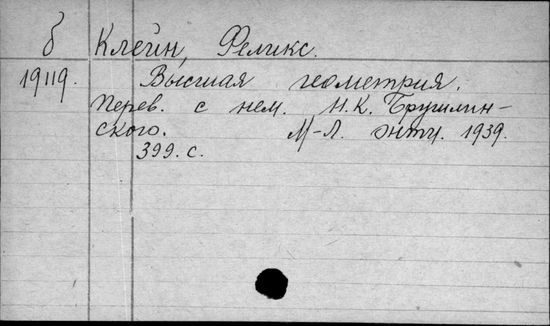 б Клейн, Феликс.
19119. Высшая геометрия.
Перев. с нем. Н.К. Брушлин-
ского. М-Л. онти. 1939.
399. с.